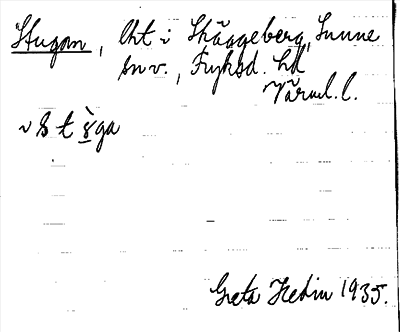 Stugan, lht i Skäggeberg, Sunne
sn v., Fryksd. hd
Värml. l.
Greta Hedin 1935.